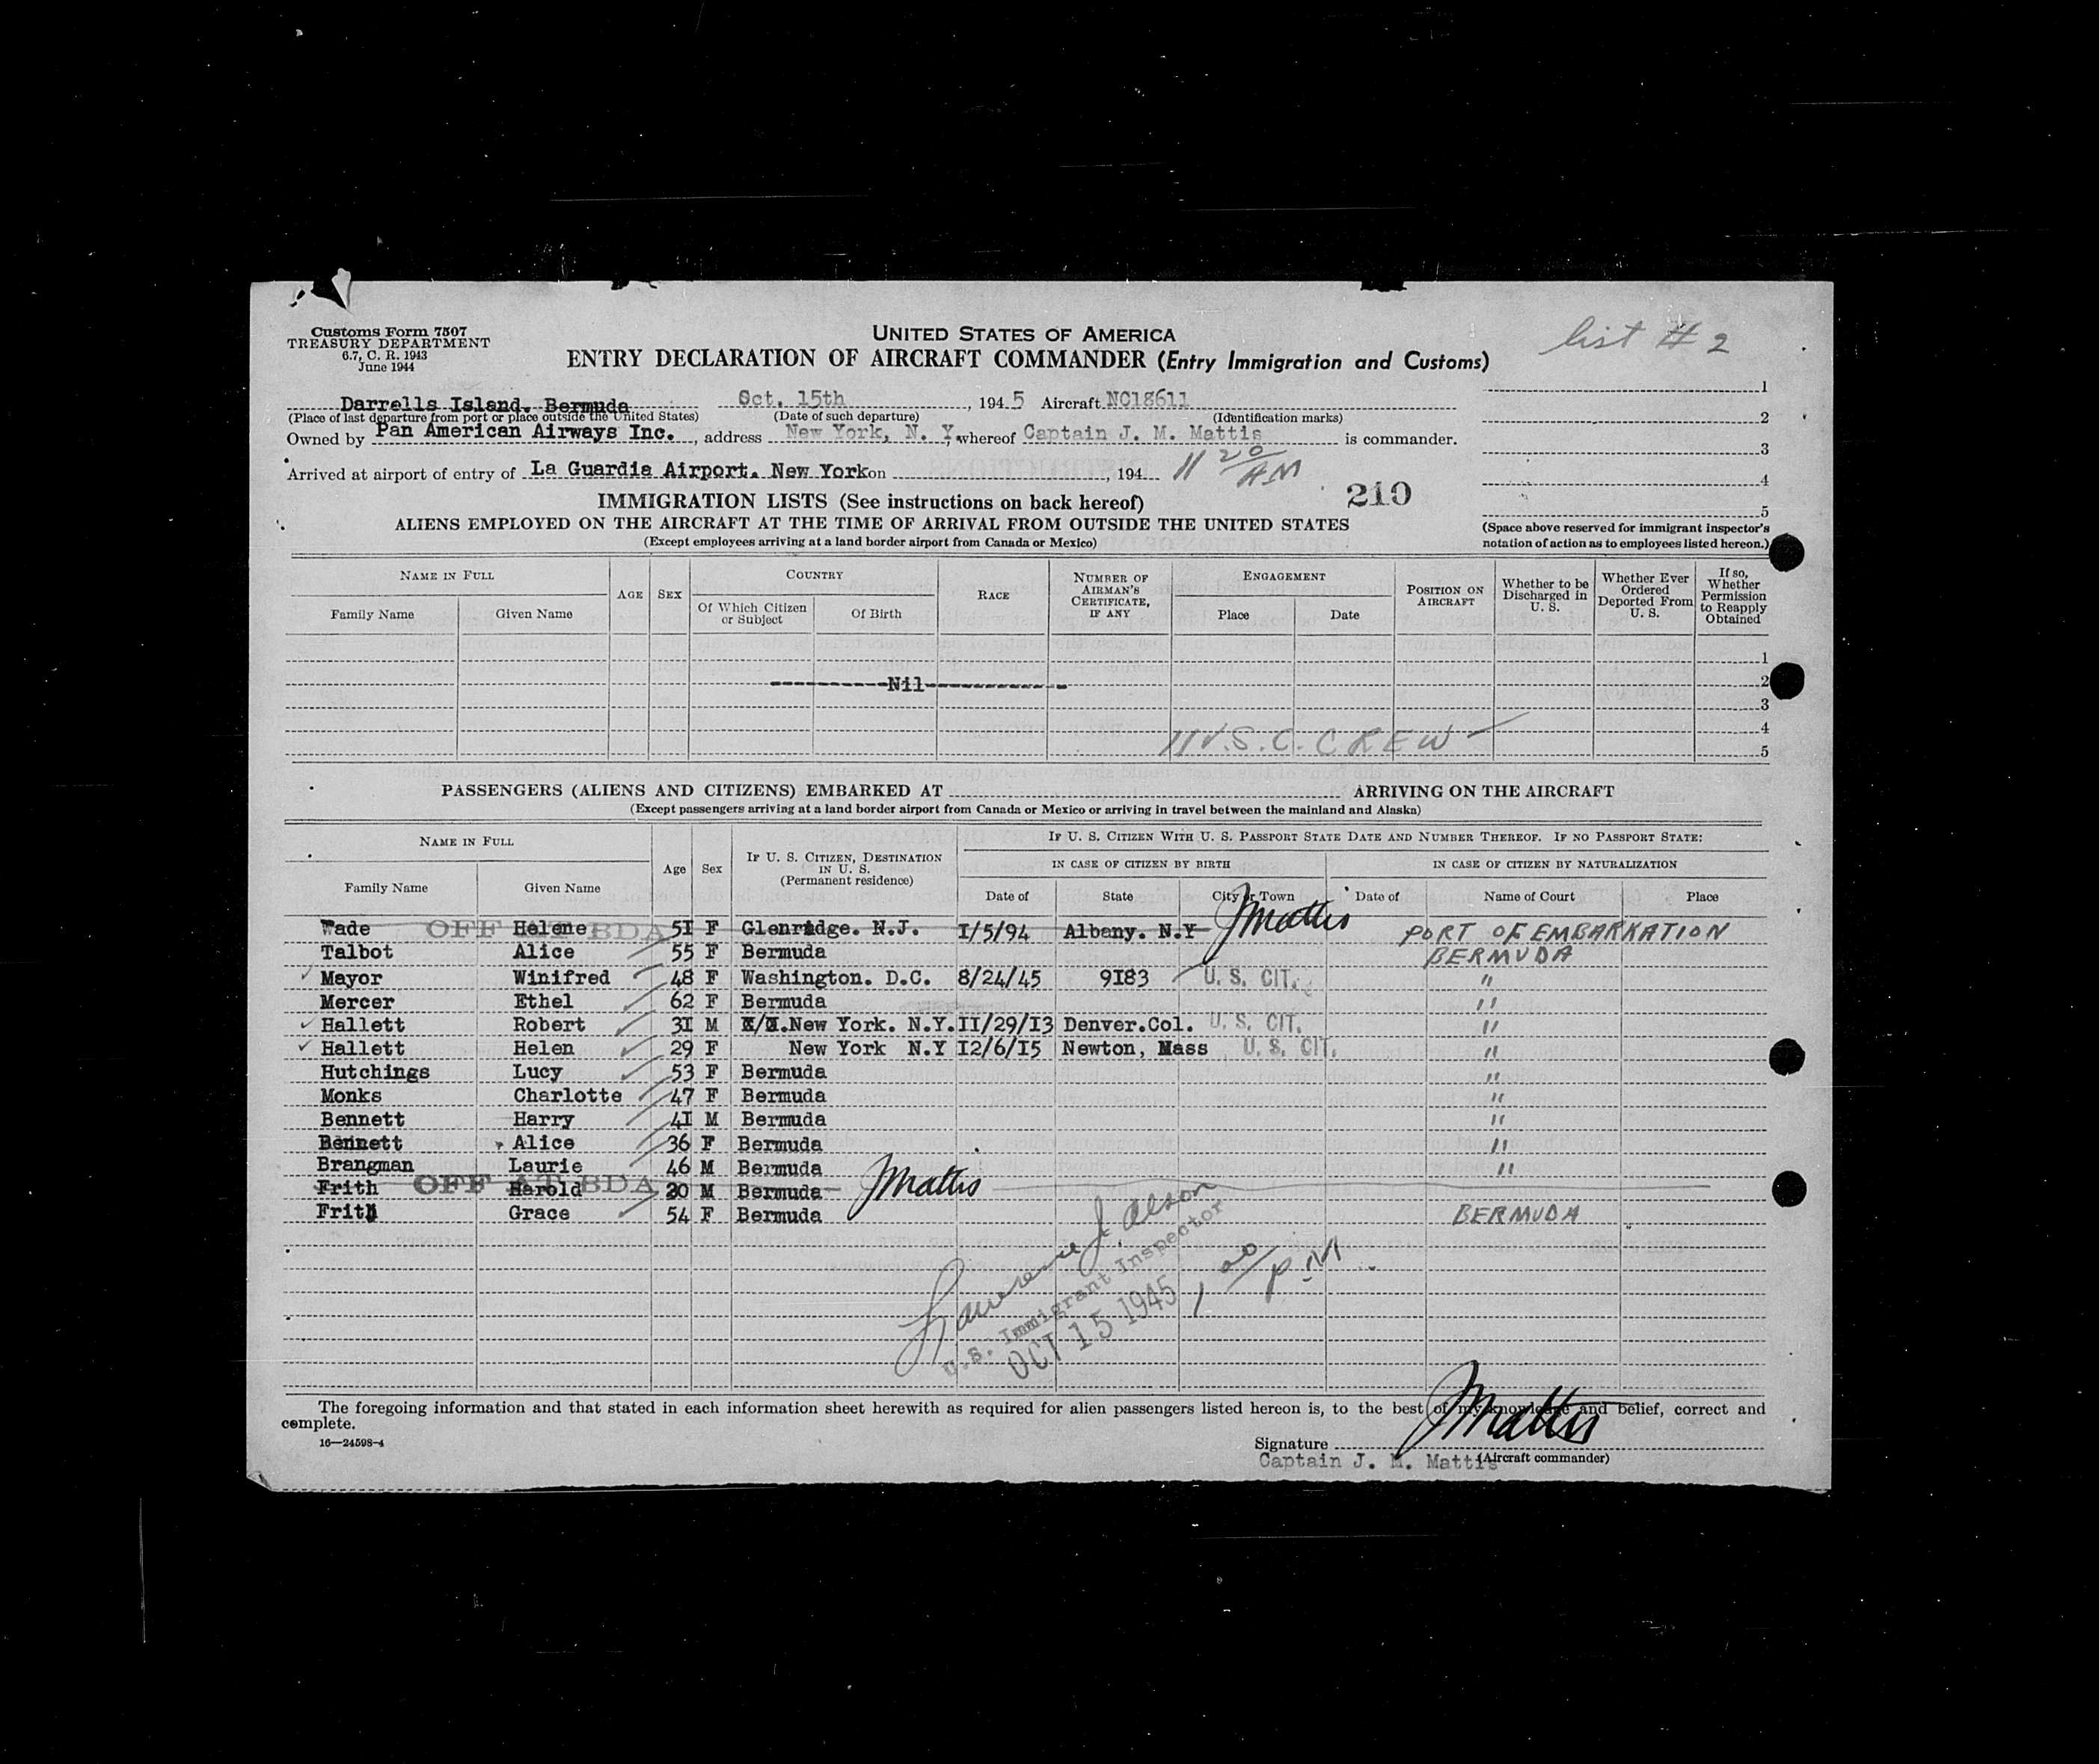 list # 2
Customs Form 7507
TREASURY DEPARTMENT
6.7, C. R. 1943
June 1944
UNITED STATES OF AMERICA
ENTRY DECLARATION OF AIRCRAFT COMMANDER (Entry Immigration and Customs)
Darrells Island. Bermuda Oct. 15th, 1945 Aircraft NC18611
(Place of last departure from port or place outside the United States) (Date of such departure) (Identification marks)
Owned by Pan American Airways Inc., address New York, N. Y, whereof Captain J. M. Mattis is commander.
Arrived at airport of entry of La Guardia Airport. New York on , 194 11 20/AM
1
2
3
4
5
(Space above reserved for immigrant inspector's
notation of action as to employees listed hereon.)
IMMIGRATION LISTS (See instructions on back hereof) 210
ALIENS EMPLOYED ON THE AIRCRAFT AT THE TIME OF ARRIVAL FROM OUTSIDE THE UNITED STATES
(Except employees arriving at a land border airport from Canada or Mexico)
NAME IN FULL AGE SEX COUNTRY RACE NUMBER OF AIRMAN'S CERTIFICATE, IF ANY ENGAGEMENT POSITION ON AIRCRAFT Whether to be Discharged in U. S. Whether Ever Ordered Deported From U. S. If so, Whether Permission to Reapply Obtained
Family Name Given Name Of Which Citizen or Subject Of Birth Place Date
1
----------Nil------------- 2
3
4
11 U.S.C. CREW
5
PASSENGERS (ALIENS AND CITIZENS) EMBARKED AT ARRIVING ON THE AIRCRAFT
(Except passengers arriving at a land border airport from Canada or Mexico or arriving in travel between the mainland and Alaska)
NAME IN FULL Age Sex IF U. S. CITIZEN, DESTINATION IN U. S. (Permanent residence) IF U. S. CITIZEN WITH U. S. PASSPORT STATE DATE AND NUMBER THEREOF. IF NO PASSPORT STATE:
IN CASE OF CITIZEN BY BIRTH IN CASE OF CITIZEN BY NATURALIZATION
Family Name Given Name Date of State City or Town Date of Name of Court Place
Wade OFF AT BDA Helene 51 F Glenridge. N.J. I/5/94 Albany. N.Y JMattis PORT OF EMBARKATION
Talbot Alice 55 F Bermuda BERMUDA
✓ Mayor Winifred 48 F Washington. D.C. 8/24/45 9I83 U. S. CIT. "
Mercer Ethel 62 F Bermuda "
✓ Hallett Robert 3I M New York. N.Y. II/29/I3 Denver.Col. U. S. CIT. "
✓ Hallett Helen 29 F New York N.Y I2/6/I5 Newton, Mass U. S. CIT. "
Hutchings Lucy 53 F Bermuda "
Monks Charlotte 47 F Bermuda "
Bennett Harry 4I M Bermuda "
Bennett Alice 36 F Bermuda "
Brangman Laurie 46 M Bermuda "
Frith OFF AT BDA Harold 20 M Bermuda JMattis
Frith Grace 54 F Bermuda BERMUDA
Lawrence J. Olson
U.S. Immigrant Inspector
OCT 15 1945 1 20/PM
The foregoing information and that stated in each information sheet herewith as required for alien passengers listed hereon is, to the best of my knowledge and belief, correct and
complete.
16—24598-4
Signature JMattis
Captain J. M. Mattis (Aircraft commander)